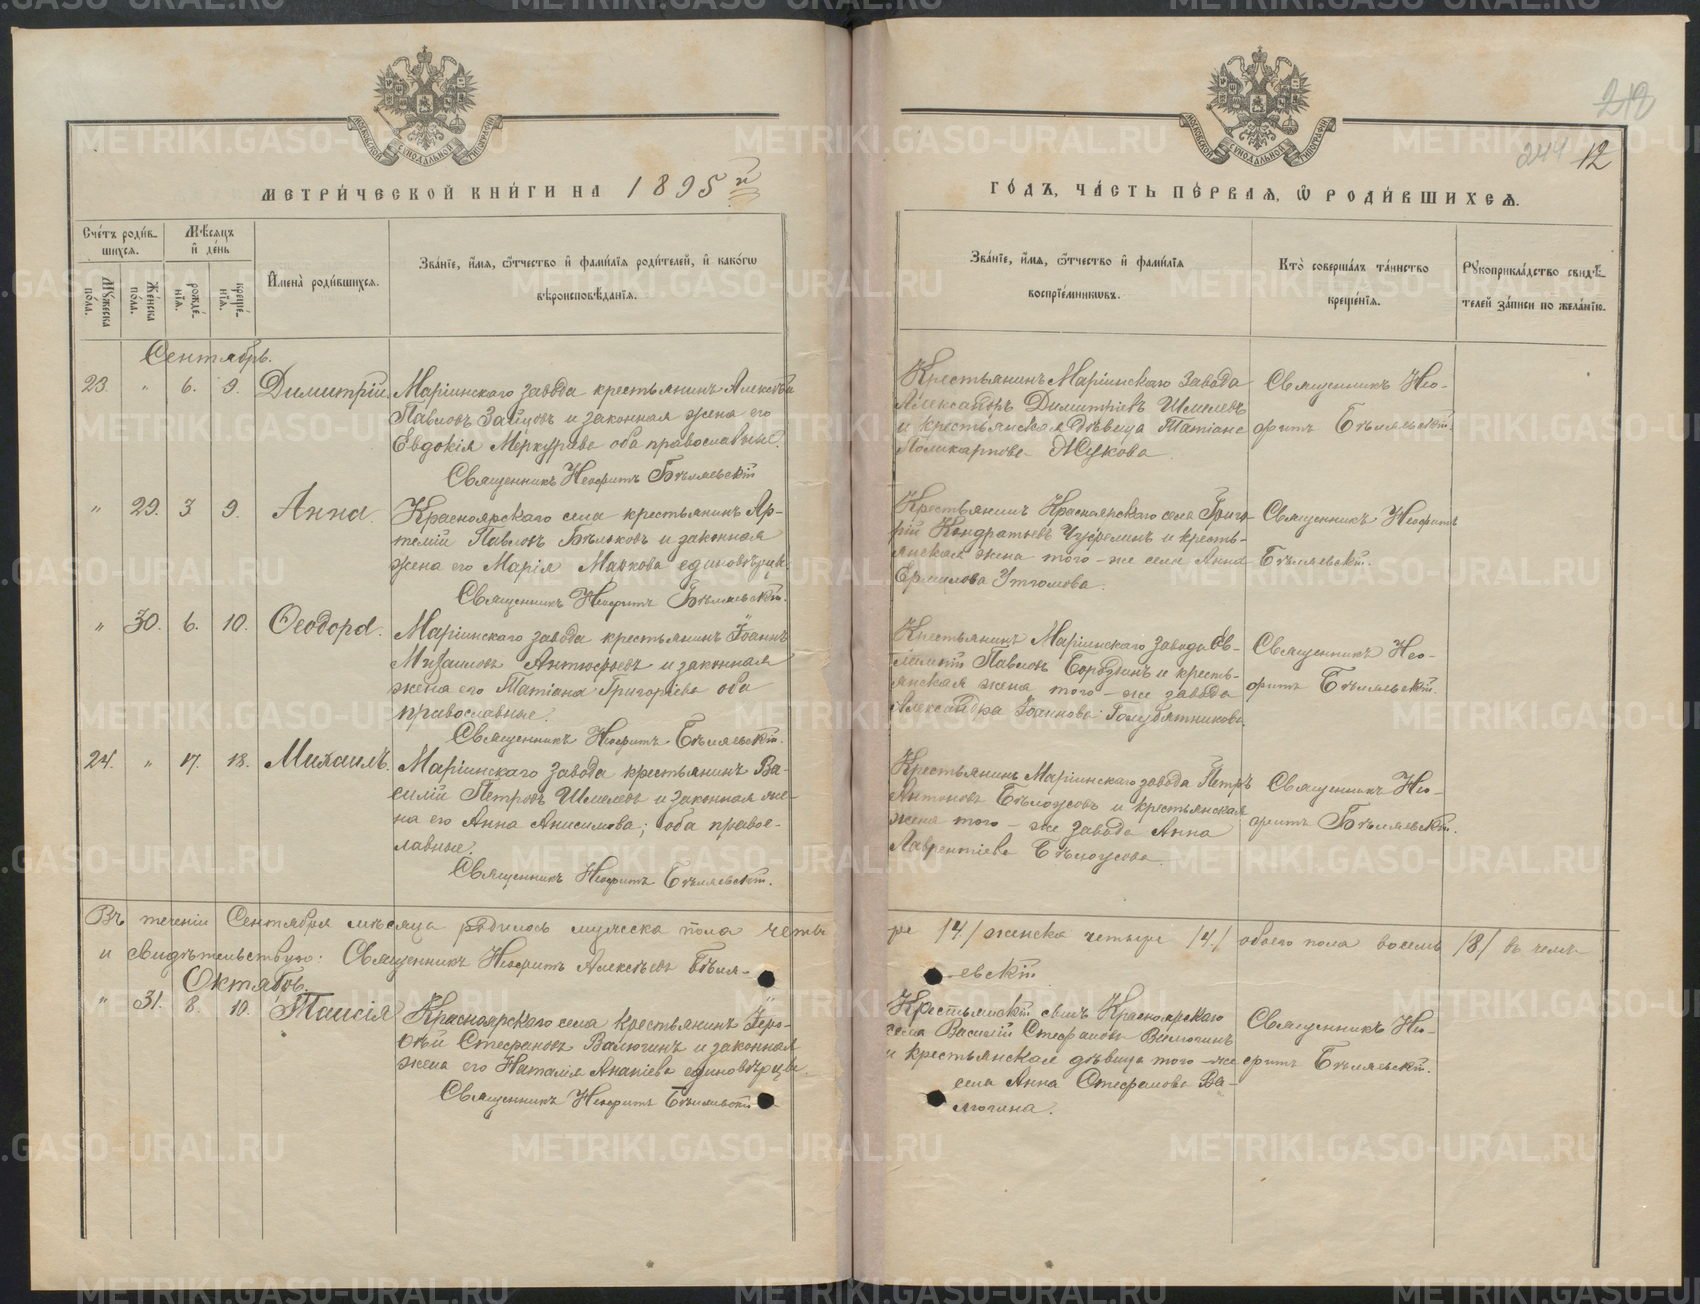 МЕТРИ́ЧЕСКОЙ КНИ́ГИ НА 1895 й
ГО́ДЪ, ЧА́СТЬ ПЕ́РВАЯ, Ѽ РОДИ́ВШИХСЯ.
244 12
Сче́тъ роди́вшихся.
Мѣ́сяцъ и҆ де́нь
Му́жеска по́ла.
Же́нска по́ла.
рожде́нїя.
креще́нїя.
И҆мена̀ роди́вшихся.
Зва́нїе, и҆́мя, ѻ҆́тчество и҆ фами́лїя роди́телей, и҆ како́гѡ
вѣроисповѣ́данїя.
Зва́нїе, и҆́мя, ѻ҆́тчество и҆ фами́лїя
воспрїе́мникѡвъ.
Кто̀ соверша́лъ та́инство
креще́нїя.
Рꙋкоприкла́дство свидѣ́телей за́писи по жела́нїю.
Сентябрь.
23. " 6. 9. Димитрій.
Маріинскаго завода крестьянинъ Алексѣй
Павловъ Зайцовъ и законная жена его
Евдокія Меркурьева оба православные.
Священникъ Неофитъ Бѣляевскій
Крестьянинъ Маріинскаго завода
Александръ Димитріевъ Шмелевъ
и крестьянская дѣвица Татіана
Поликарпова Жукова.
Священникъ Нео-
фитъ Бѣляевскій.
" 29. 3 9. Анна.
Красноярскаго села крестьянинъ Ар-
темій Павловъ Бѣльковъ и законная
жена его Марія Маркова единовѣрцы.
Священникъ Неофитъ Бѣляевскій.
Крестьянинъ Красноярскаго села Григо-
рій Кондратьевъ и кресть-
янская жена того-же села Анна
Ермилова
Священникъ Неофитъ
Бѣляевскій.
" 30. 6. 10. Ѳеодора.
Маріинскаго завода крестьянинъ Іоаннъ
Михаиловъ Антюфьевъ и законная
жена его Татіана Григоріева оба
православные.
Священникъ Неофитъ Бѣляевскій.
Крестьянинъ Маріинскаго завода Ев-
Павловъ Бородинъ и кресть-
янская жена того-же завода
Александра Іоаннова Голубятникова.
Священникъ Нео-
фитъ Бѣляевскій.
24. " 17. 18. Михаилъ.
Маріинскаго завода крестьянинъ Ва-
силій Петровъ Шмелевъ и законная же-
на его Анна Анисимова; оба правос-
лавные.
Священникъ Неофитъ Бѣляевскій.
Крестьянинъ Маріинскаго завода Петръ
Антоновъ Бѣлоусовъ и крестьянская
жена того-же завода Анна
Лаврентіева Бѣлоусова.
Священникъ Нео-
фитъ Бѣляевскій.
Въ теченіи Сентября мѣсяца родилось мужеска пола четы-
ре /4/ женска четыре /4/ обоего пола восемь /8/ въ чемъ
и свидѣтельствую: Священникъ Неофитъ Алексѣевъ Бѣля-
евскій
Октябрь.
" 31. 8. 10. Таисія
Красноярскаго села крестьянинъ Іеро-
фей Стефановъ Валюгинъ и законная
жена его Наталія Ананіева единовѣрцы.
Священникъ Неофитъ Бѣляевскій
Крестьянскій сынъ Красноярскаго
села Василій Стефановъ Валюгинъ
и крестьянская дѣвица того-же
села Анна Стефанова Ва-
люгина.
Священникъ Нео-
фитъ Бѣляевскій.
METRIKI.GASO-URAL.RU